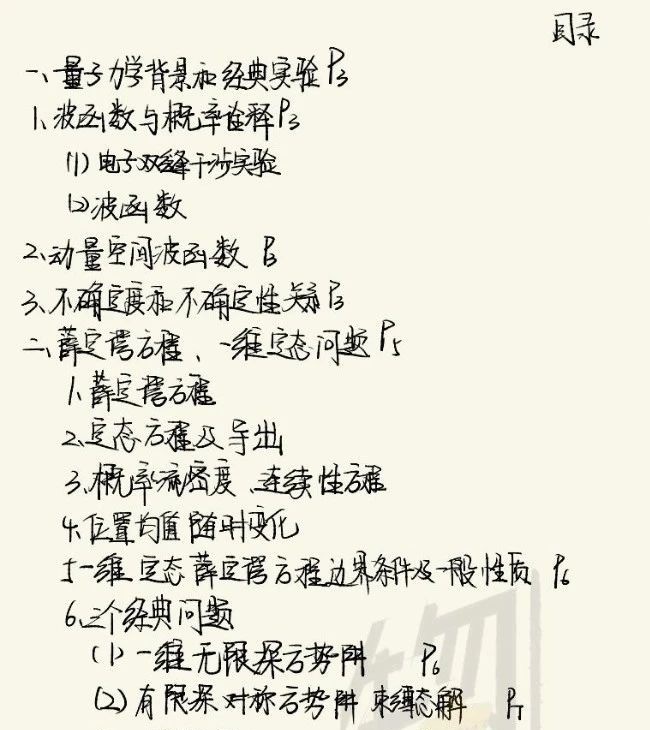 目录
一、量子力学背景和经典实验 P3
1、波函数与概率诠释 P3
(1) 电子双缝干涉实验
(2) 波函数
2、动量空间波函数 P3
3、不确定度和不确定性关系 P3
二、薛定谔方程、一维定态问题 P5
1、薛定谔方程
2、定态方程及导出
3、概率流密度、连续性方程
4、位置均值随时变化
5、一维定态薛定谔方程边界条件及一般性质 P6
6、三个经典问题
(1) 一维无限深方势阱 P6
(2) 有限深对称方势阱 束缚态解 P7